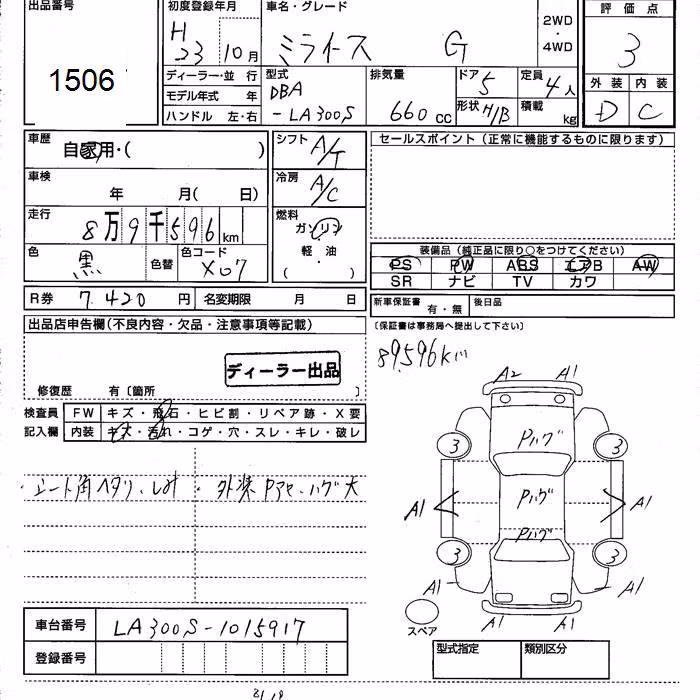 出品番号 1506
初度登録年月 H 23 10月
車名・グレード ミライース G
2WD・4WD
評価点 3
外装 D 内装 C
ディーラー・並 行
モデル年式 年
ハンドル 左・右
型式 DBA - LA300S
排気量 660 cc
ドア 5
形状 H/B
定員 4人
積載 kg
車歴 自家用・( )
車検 年 月( 日)
走行 8万9千596km
色 黒 色替 色コード X07
シフト A/T
冷房 A/C
燃料 ガソリン 軽・油 ( )
セールスポイント(正常に機能するものに限ります)
装備品(純正品に限り○をつけてください)
PS PW ABS エアB AW
SR ナビ TV カワ
R券 7.420円 名変期限 月 日
新車保証書 有・無 後日品
(保証書は事務局へ提出して下さい)
出品店申告欄(不良内容・欠品・注意事項等記載)
ディーラー出品
修復歴 有〔箇所 〕
89,596km
検査員記入欄
FW キズ・飛石・ヒビ割・リペア跡・X要
内装 キズ・汚れ・コゲ・穴・スレ・キレ・破レ
・シート角ヘタリ、
・外装Pアセ、ハゲ大
A2 A1
3 Pハゲ 3
A1 Pハゲ A1
Pハゲ
3 3
A1 A1
A1 A1
スペア
車台番号 LA300S-1015917
登録番号
型式指定 類別区分